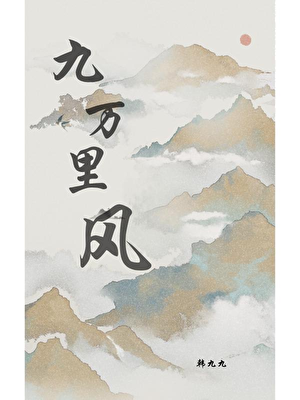 九万里风
韩九九